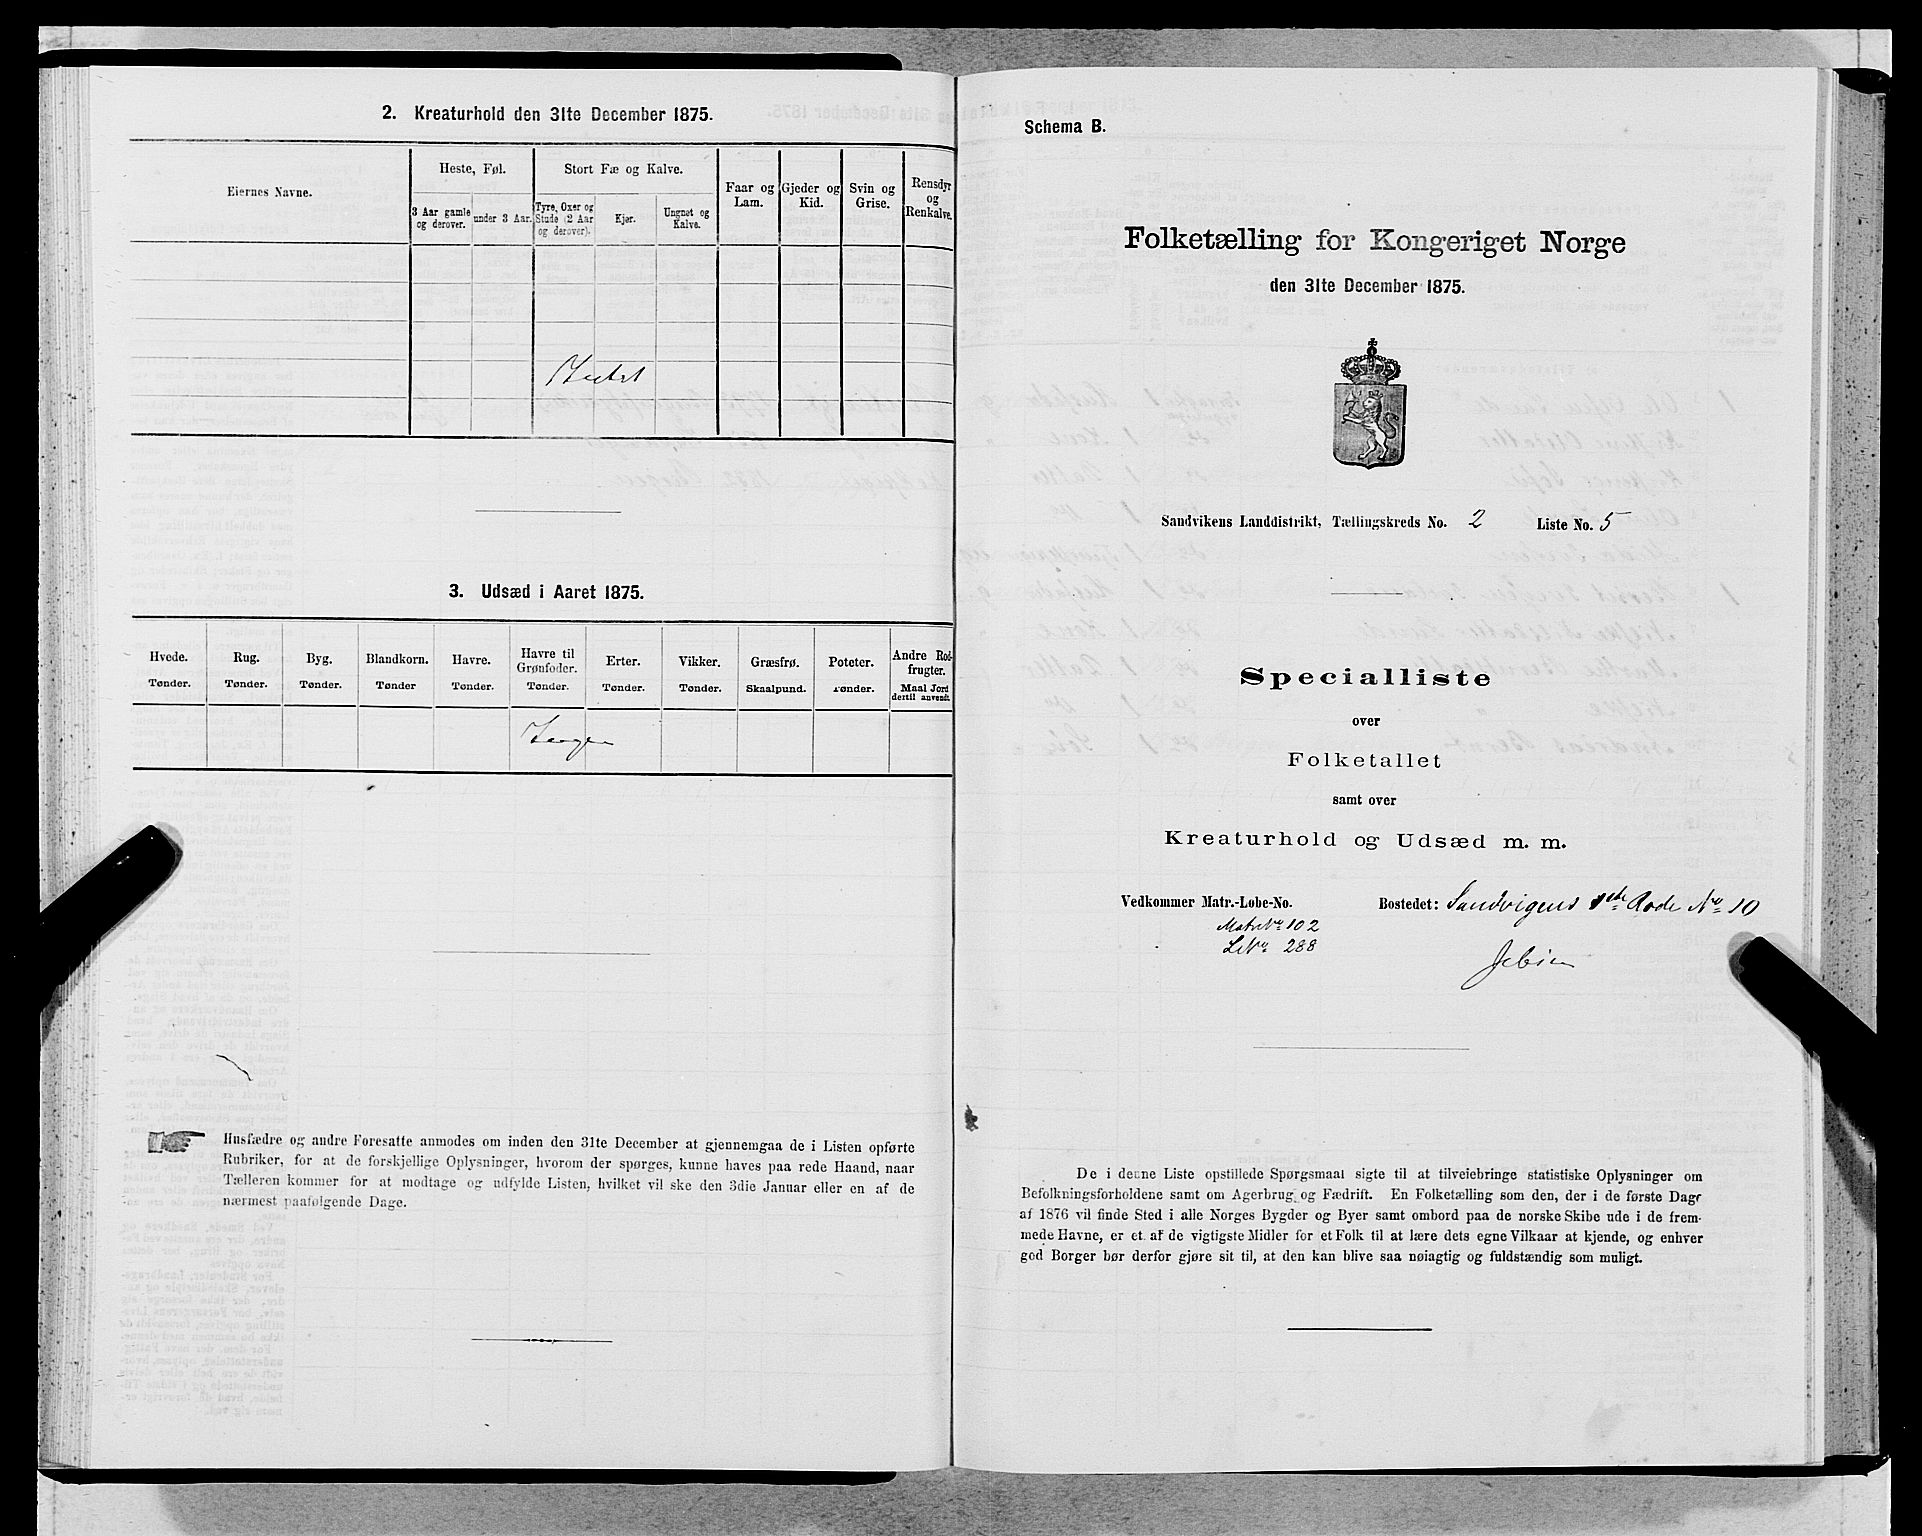 2. Kreaturhold den 31te December 1875.
Eiernes Navne.
Heste, Føl.
3 Aar gamle og derover.
under 3 Aar.
Stort Fæ og Kalve.
Tyre, Oxer og Stude (2 Aar og derover).
Kjør.
Ungnøt og Kalve.
Faar og Lam.
Gjeder og Kid.
Svin og Grise.
Rensdyr og Renkalve.
Intet
3. Udsæd i Aaret 1875.
Hvede. Tønder.
Rug. Tønder.
Byg. Tønder.
Blandkorn. Tønder
Havre. Tønder.
Havre til Grønfoder. Tønder.
Erter. Tønder.
Vikker. Tønder.
Græsfrø. Skaalpund.
Poteter. Tønder.
Andre Rodfrugter. Maal Jord dertil anvendt.
Ingen
Husfædre og andre Foresatte anmodes om inden den 31te December at gjennemgaa de i Listen opførte
Rubriker, for at de forskjellige Oplysninger, hvorom der spørges, kunne haves paa rede Haand, naar
Tælleren kommer for at modtage og udfylde Listen, hvilket vil ske den 3die Januar eller en af de
nærmest paafølgende Dage.
Schema B.
Folketælling for Kongeriget Norge
den 31te December 1875.
Sandvikens Landdistrikt, Tællingskreds No. 2 Liste No. 5
Specialliste
over
Folketallet
samt over
Kreaturhold og Udsæd m. m.
Vedkommer Matr.-Løbe-No. Bostedet: Sandvigens 1ste Rode No 10
Matr No 102
L No 288
De i denne Liste opstillede Spørgsmaal sigte til at tilveiebringe statistiske Oplysninger om
Befolkningsforholdene samt om Agerbrug og Fædrift. En Folketælling som den, der i de første Dage
af 1876 vil finde Sted i alle Norges Bygder og Byer samt ombord paa de norske Skibe ude i de frem-
mede Havne, er et af de vigtigste Midler for et Folk til at lære dets egne Vilkaar at kjende, og enhver
god Borger bør derfor gjøre sit til, at den kan blive saa nøiagtig og fuldstændig som muligt.